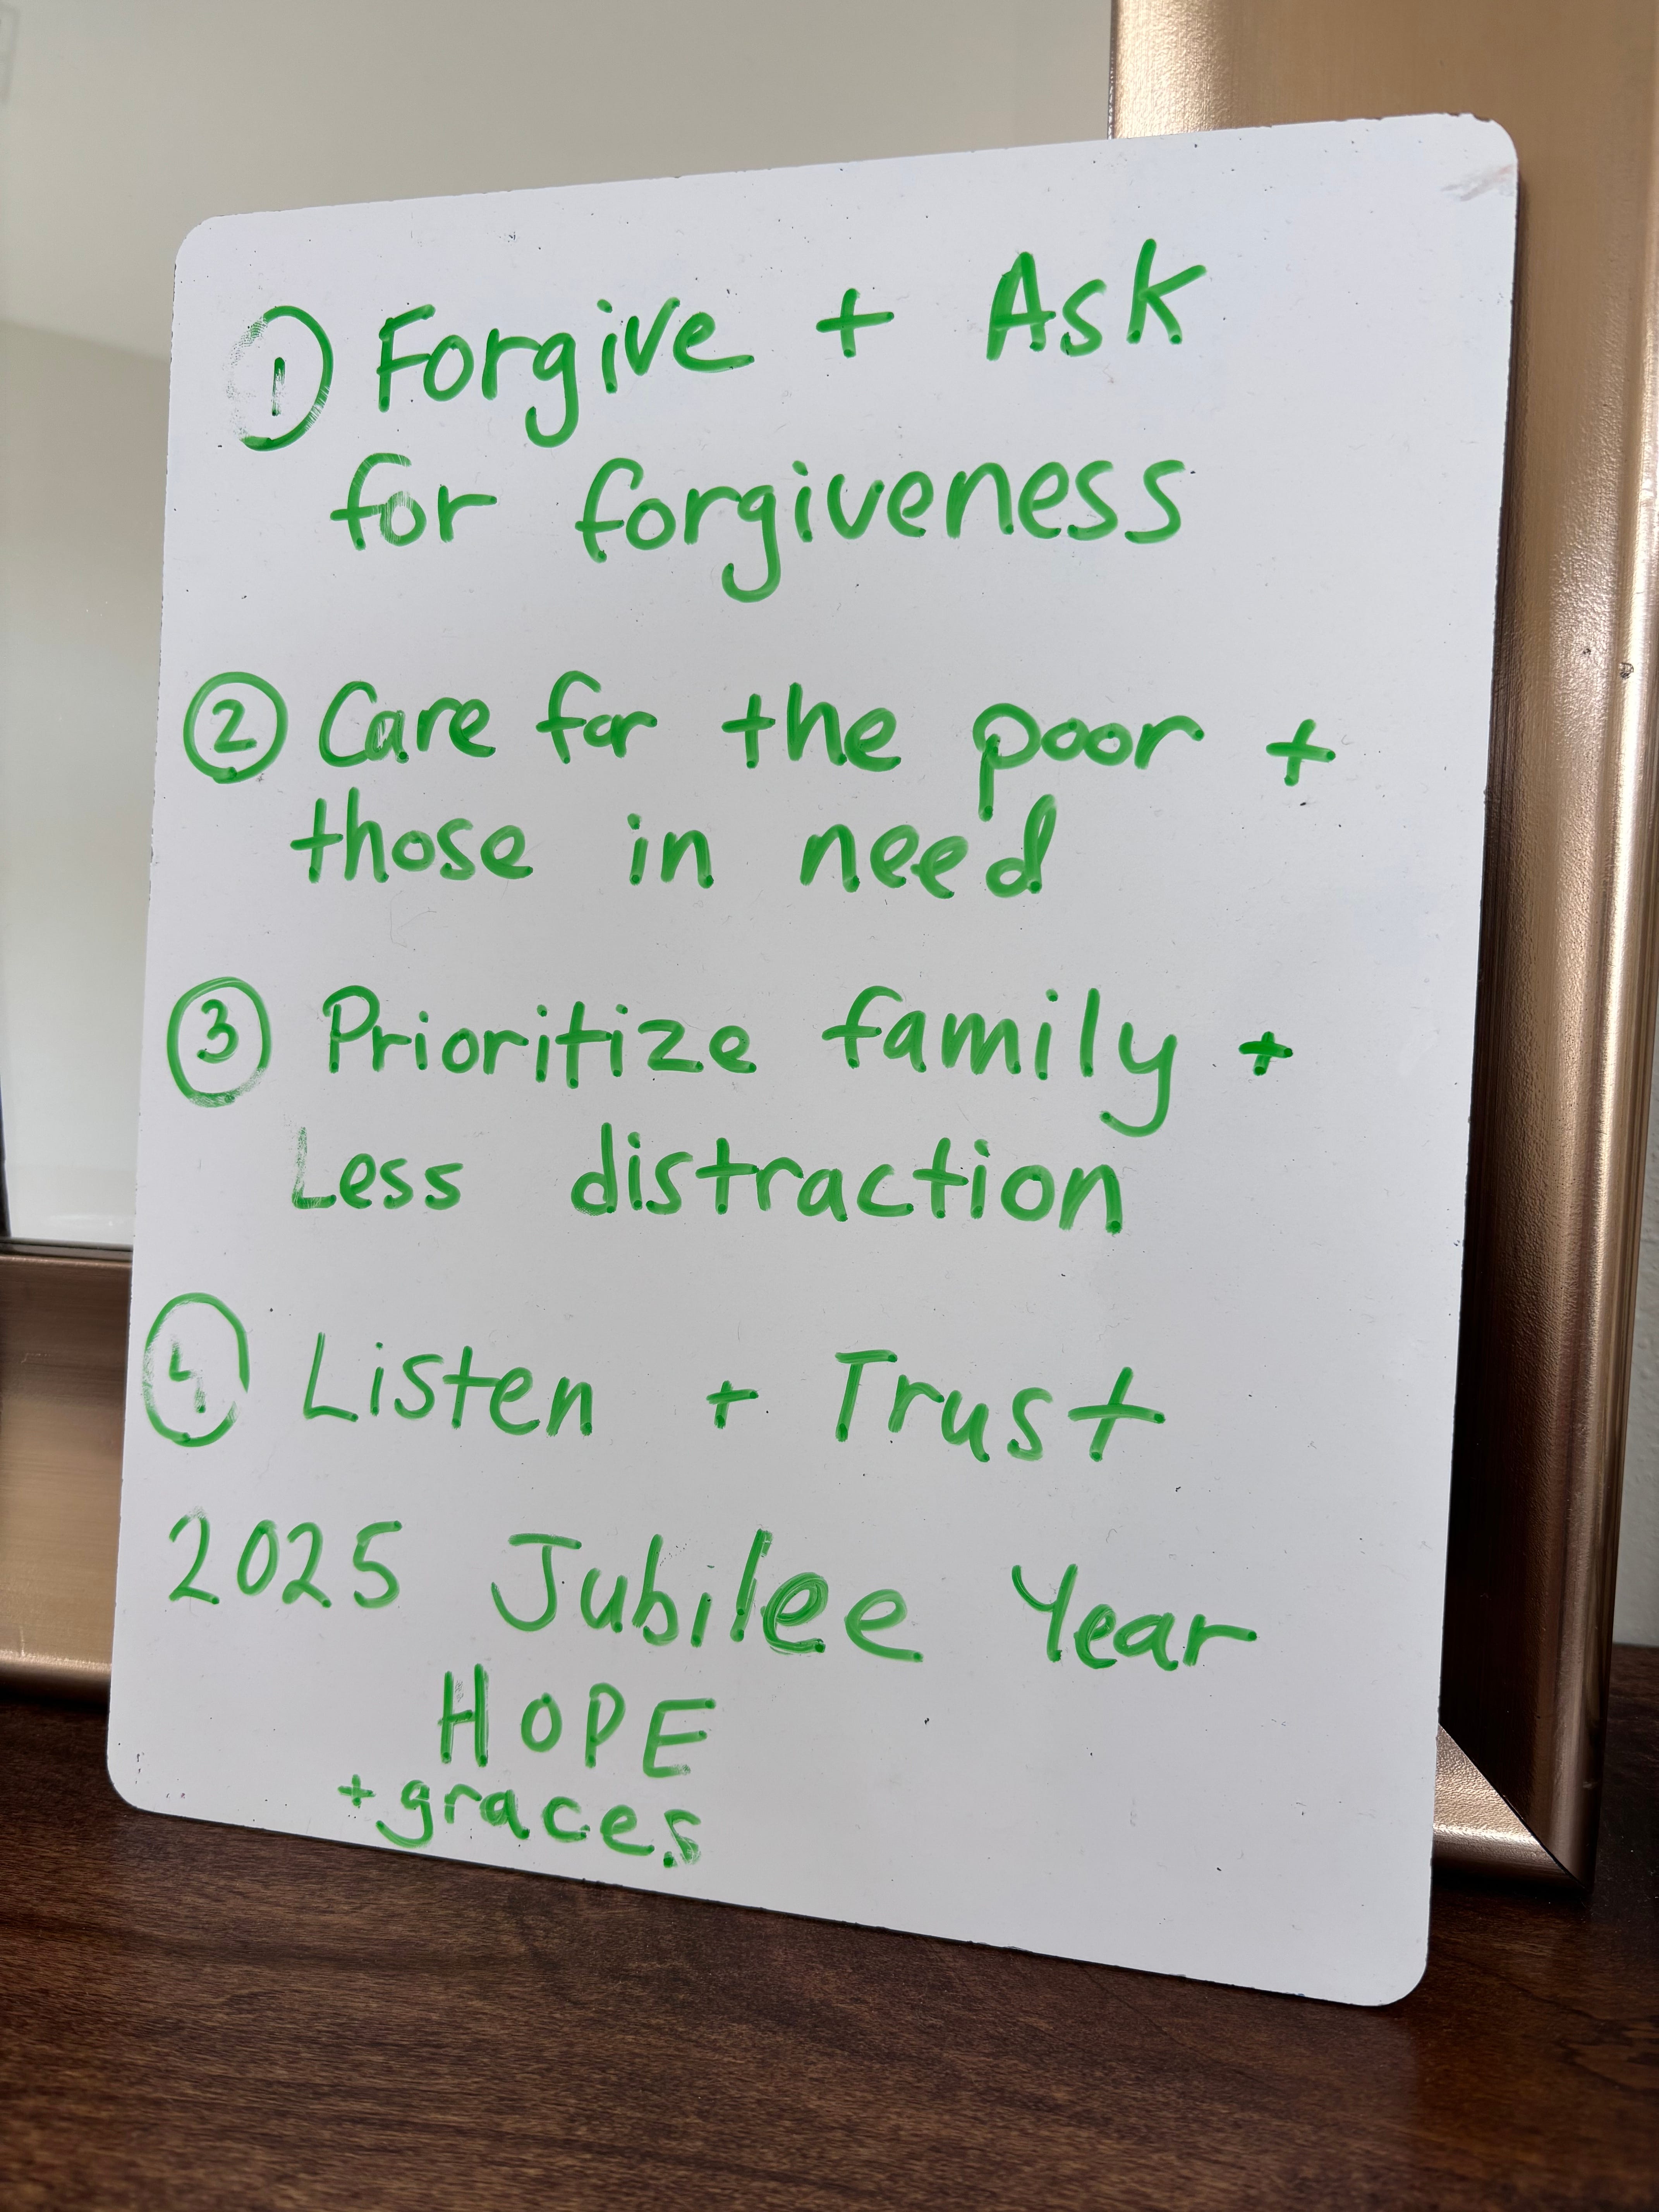 ① Forgive + Ask
for forgiveness
② Care for the poor +
those in need
③ Prioritize family +
Less distraction
④ Listen + Trust
2025 Jubilee Year
HOPE
+ graces